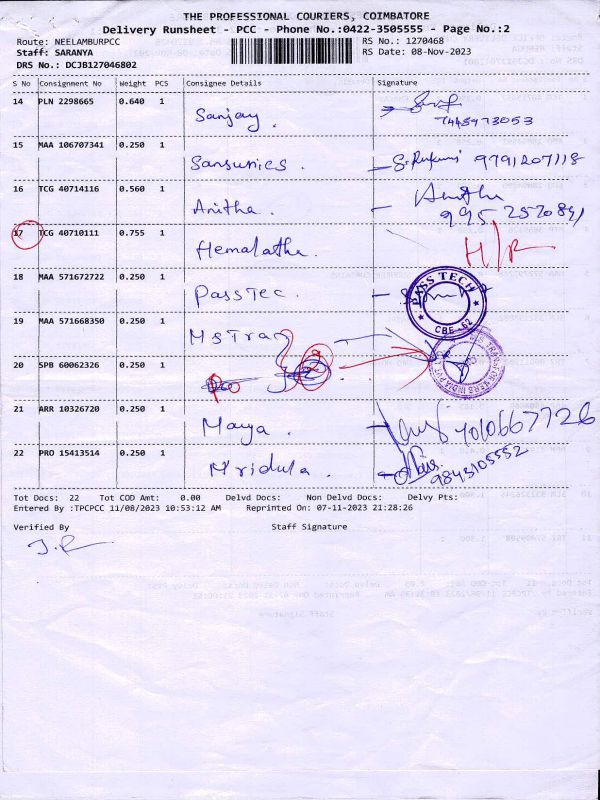 THE PROFESSIONAL COURIERS, COIMBATORE
Delivery Runsheet - PCC - Phone No.:0422-3505555 - Page No.:2
Route: NEELAMBURPCC RS No.: 1270468
Staff: SARANYA RS Date: 08-Nov-2023
DRS No.: DCJB127046802
S No Consignment No Weight PCS Consignee Details Signature
14 PLN 2298665 0.640 1
Sanjay. 7448973053
15 MAA 106707341 0.250 1
Sansunics. 9791207118
16 TCG 40714116 0.560 1
Anitha. - Anitha
17 TCG 40710111 0.755 1
Hemalatha. H/R
18 MAA 571672722 0.250 1
PassTec. PASS TECH CBE - 62
19 MAA 571668350 0.250 1
MsTran
20 SPB 60062326 0.250 1
21 ARR 10326720 0.250 1
Maya. 7010667726
22 PRO 15413514 0.250 1
Mridula. 9843105552
Tot Docs: 22 Tot COD Amt: 0.00 Delvd Docs: Non Delvd Docs: Delvy Pts:
Entered By :TPCPCC 11/08/2023 10:53:12 AM Reprinted On: 07-11-2023 21:28:26
Verified By Staff Signature